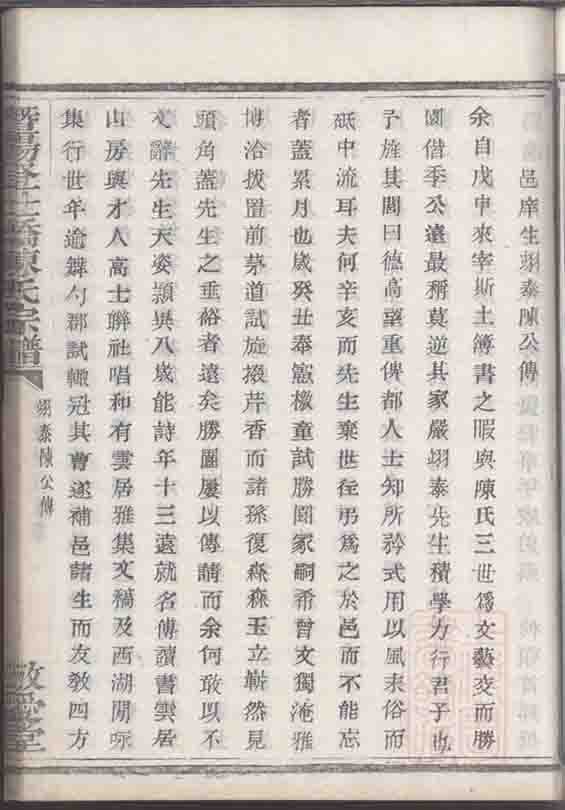 邑庠生翊泰陳公傳
余自戊申來宰斯土簿書之暇與陳氏三世爲文藝交而勝
園偕季公遠最稱莫逆其家嚴翊泰先生積學力行君子也
予旌其閭曰德高望重俾都人士知所矜式用以風末俗而
砥中流耳夫何辛亥而先生棄世徃弔爲之於邑而不能忘
者蓋累月也歲癸丑奉憲檄童試勝園家嗣希曾文獨淹雅
博洽拔置前茅道試旋掇芹香而諸孫復森森玉立嶄然見
頭角蓋先生之垂裕者遠矣勝園屢以傳請而余何敢以不
文辭先生天姿頴異八歲能詩年十三遠就名傅讀書雲居
山房與才人高士聯社唱和有雲居雅集文稿及西湖閒咏
集行世年逾舞勺郡試輙冠其曹遂補邑諸生而友教四方
陳氏宗譜
翊泰陳公傳
敬愛堂